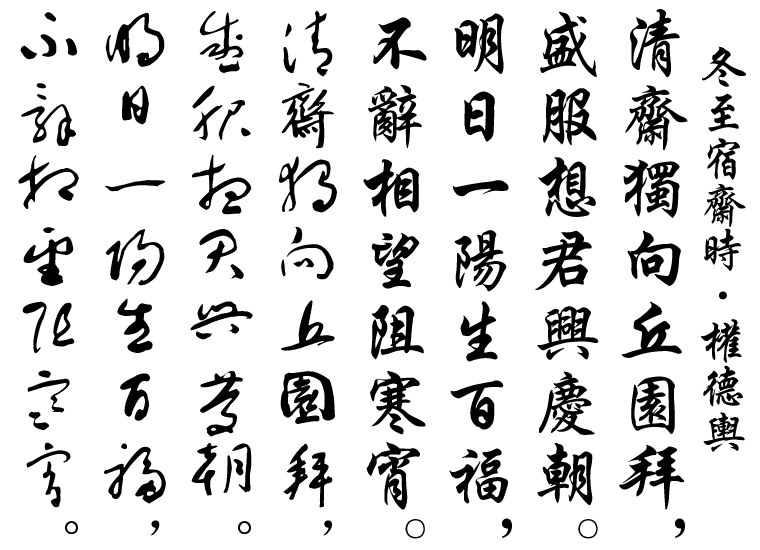 冬至宿齋時·權德輿
清齋獨向丘園拜，
盛服想君興慶朝。
明日一陽生百福，
不辭相望阻寒宵。
清齋獨向丘園拜，
盛服想君興慶朝。
明日一陽生百福，
不辭相望阻寒宵。